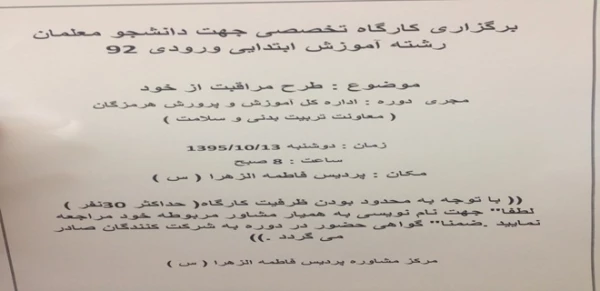 برگزاری کارگاه تخصصی جهت دانشجو معلمان
رشته آموزش ابتدایی ورودی 92
موضوع : طرح مراقبت از خود
مجری دوره : اداره کل آموزش و پرورش هرمزگان
( معاونت تربیت بدنی و سلامت )
زمان : دوشنبه 1395/10/13
ساعت : 8 صبح
مکان : پردیس فاطمه الزهرا ( س )
(( با توجه به محدود بودن ظرفیت کارگاه( حداکثر 30نفر )
لطفا" جهت نام نویسی به همیار مشاور مربوطه خود مراجعه
نمایید .ضمنا" گواهی حضور در دوره به شرکت کنندگان صادر
می گردد .))
مرکز مشاوره پردیس فاطمه الزهرا ( س )